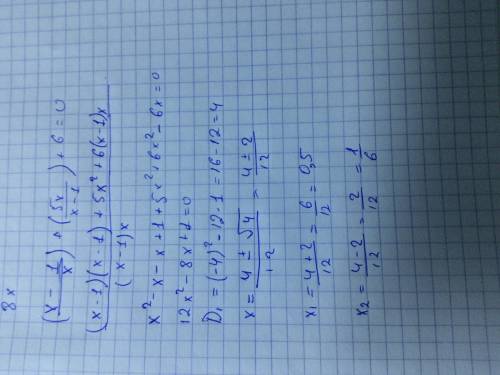 8x
(x - 1/x) + (5x/(x-1)) + 6 = 0
((x-1)(x-1) + 5x² + 6(x-1)x)/((x-1)x)
x² - x - x + 1 + 5x² + 6x² - 6x = 0
12x² - 8x + 1 = 0
D₁ = (-4)² - 12·1 = 16 - 12 = 4
x = (4 ± √4)/12 = (4 ± 2)/12
x₁ = (4+2)/12 = 6/12 = 0,5
x₂ = (4-2)/12 = 2/12 = 1/6